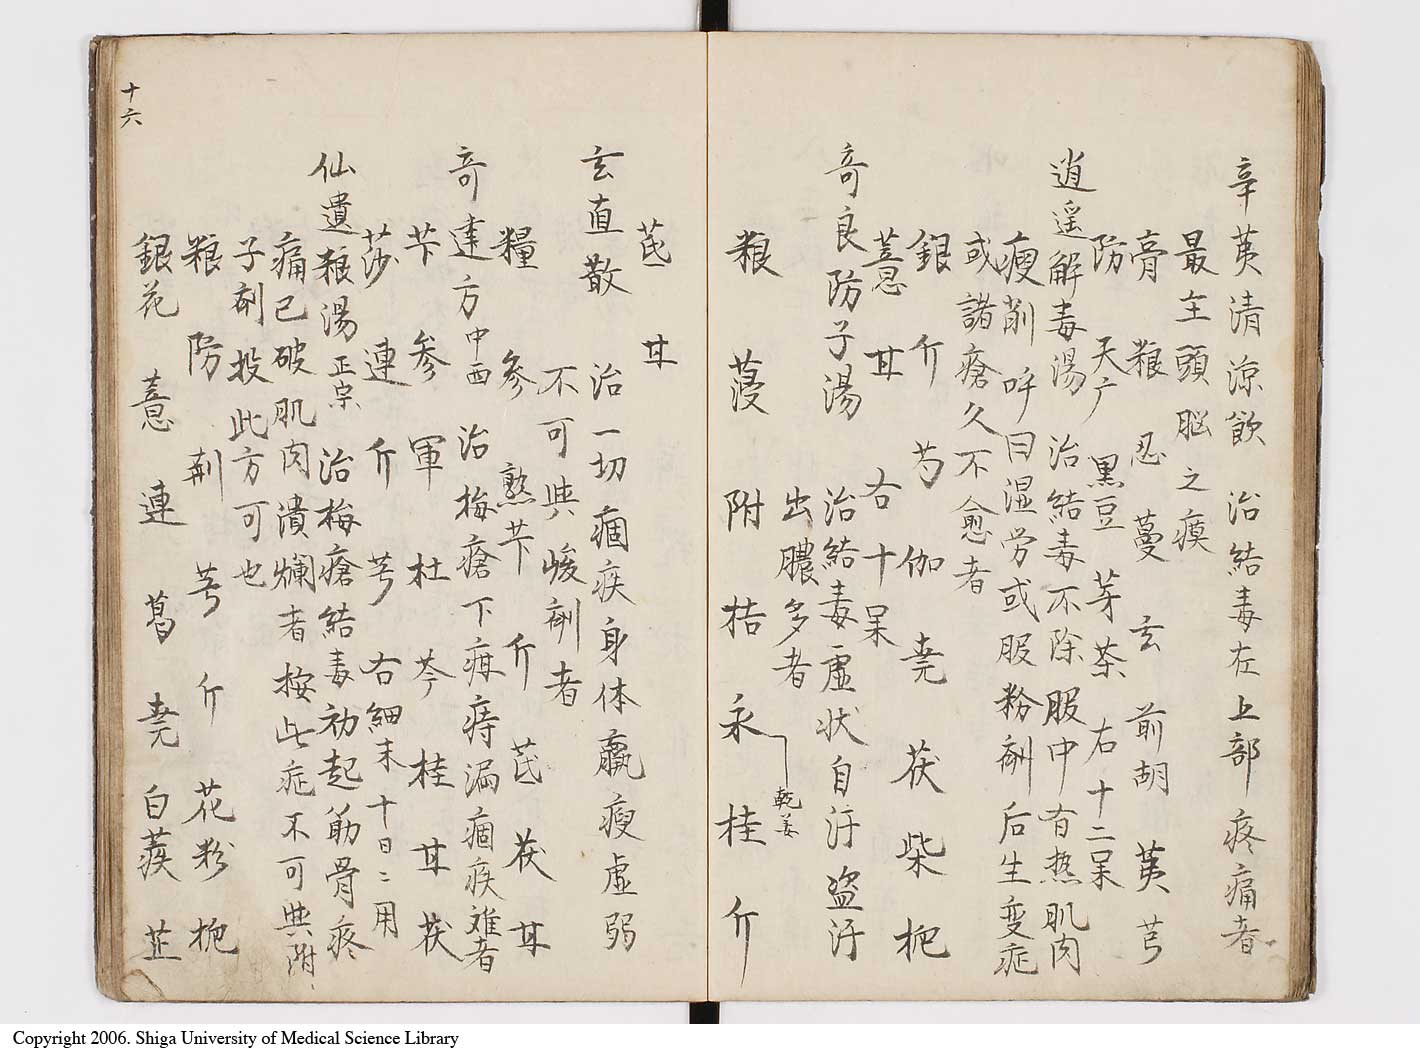 辛荑清涼飲 治結毒在上部疼痛者
最主頭脳之瘼
膏 粮 忍 蔓 玄 前胡 荑 芎
防 天广 黒豆 芽茶 右十二呆
逍遥解毒湯 治結毒不除服中有热肌肉
瘦削呼曰湿労或服粉剤后生変症
或諸瘡久不愈者
銀 斤 芍 伽 荛 茯 柴 杷
薏 甘 右十呆
奇良防子湯 治結毒虚状自汗盗汗
出膿多者
粮 蔆 附 桔 永 桂 斤
乾姜
芪 甘
玄直散 治一切痼疾身体羸瘦虚弱
不可與峻剤者
糧 参 熟苄 斤 芪 茯 甘
奇達方 中西 治梅瘡下疳痔漏痼疾难者
苄 参 軍 杜 芩 桂 甘 茯
莎 連 斤 芎 右細末十日二用
仙遺粮湯 正宗 治梅瘡結毒初起筋骨疼
痛已破肌肉潰爛者按此症不可與附
子剤投此方可也
粮 防 荊 芎 斤 花粉 杷
銀花 薏 連 葛 荛 白蒺 芷
十六
Copyright 2006. Shiga University of Medical Science Library